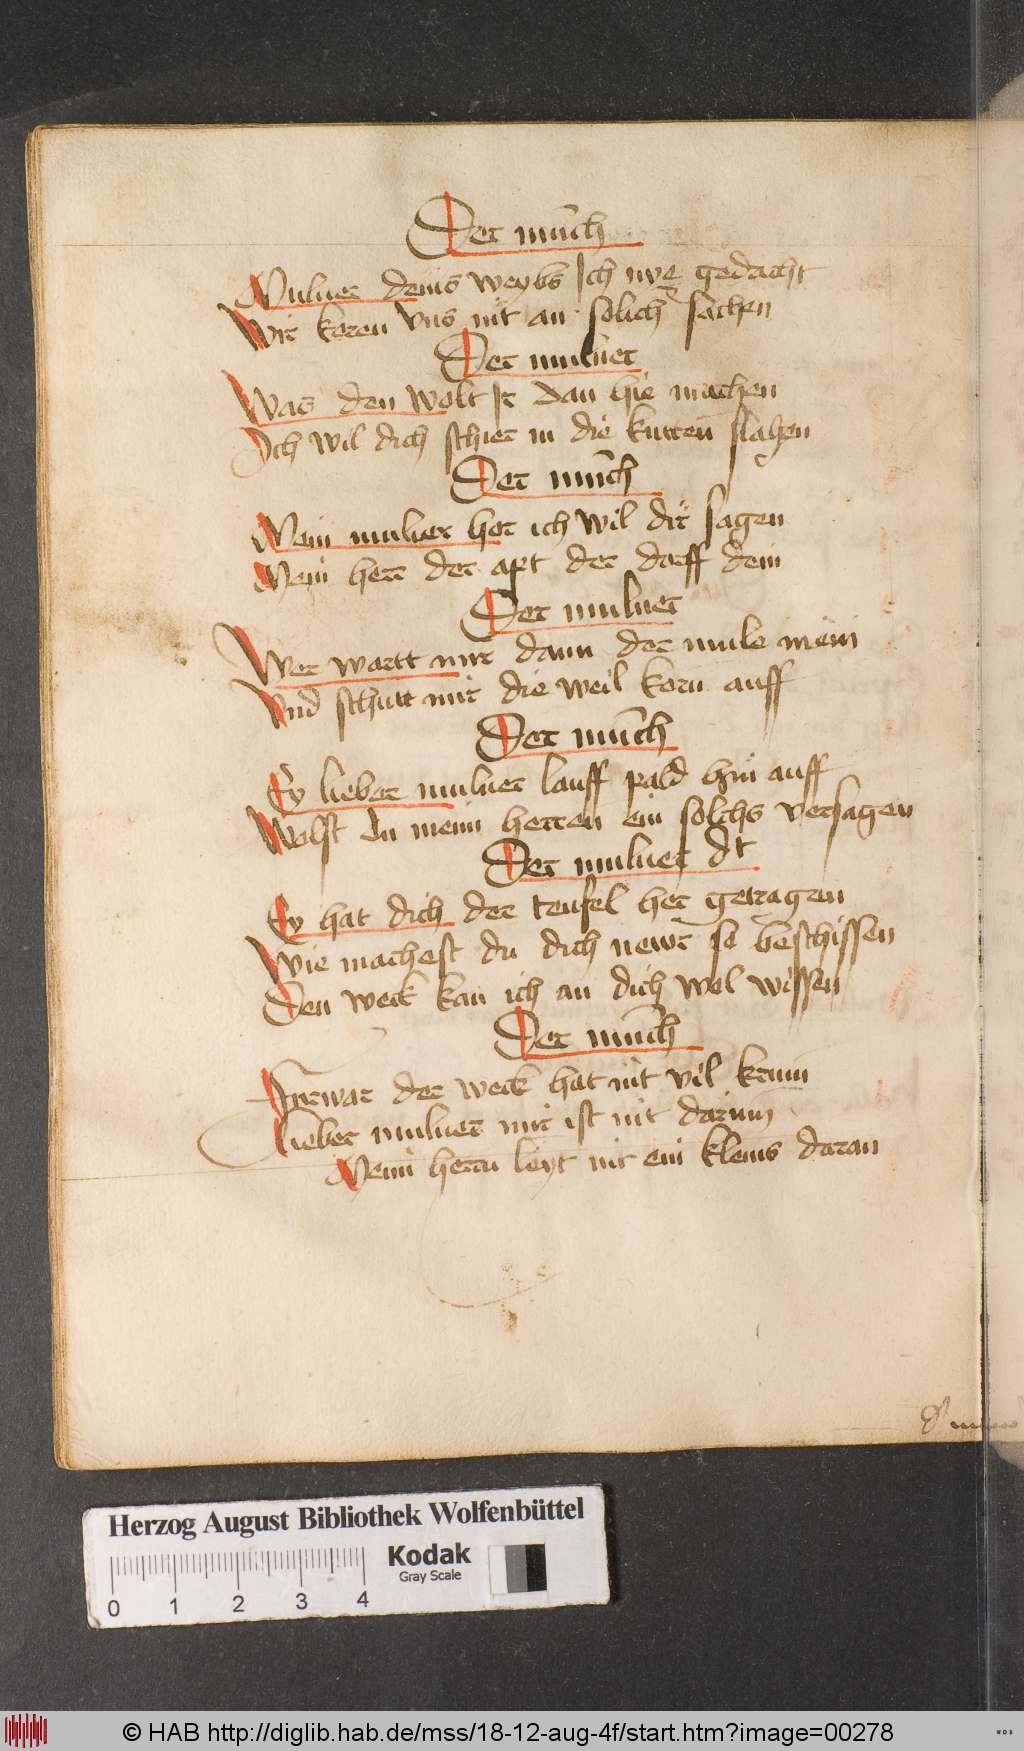 Der münch
Mulner deins weybs Ich nye gedacht
Wir koren vns nit an solich sachen
Der mulner
Was den wolt Ir dan hie machen
Ich wil dich schier in die kutten slahen
Der münch
Mein mulner hor ich wil dir sagen
Mein herr der apt der dorff dein
Der mulner
Wer wartt mir dann der mule mein
Vnd schutt mir die weil korn auff
Der münch
Ey lieber mulner lauff pald hin auff
Wolst du meim herren ein solchs versagen
Der mulner dt
Ey hat dich der teufel her getragen
Wie machest du dich newr so beschissen
Den weck kan ich an dich wol wissen
Der münch
Furwar der weck hat nit vil krum
lieber mulner mir ist nit darum
Meim herrn leyt nit ein kleins daran
Herzog August Bibliothek Wolfenbüttel
Kodak
Gray Scale
0 1 2 3 4
© HAB http://diglib.hab.de/mss/18-12-aug-4f/start.htm?image=00278